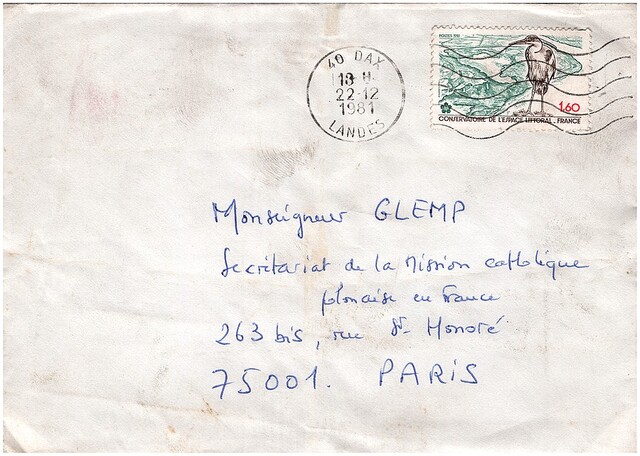 40 DAX
18 H.
22-12
1981
LANDES
POSTES 1981
1,60
CONSERVATOIRE DE L'ESPACE LITTORAL. FRANCE
Monseigneur GLEMP
Secrétariat de la Mission catholique
polonaise en France
263 bis, rue St- Honoré
75001. PARIS